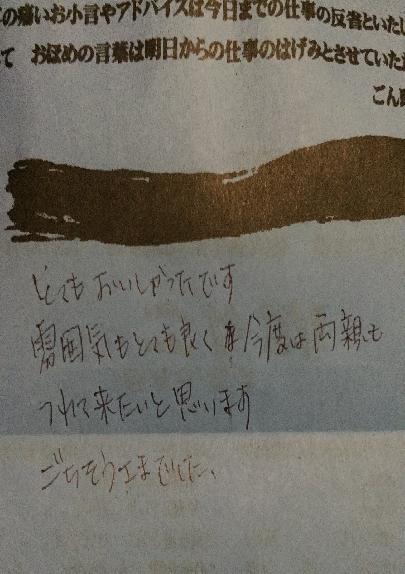 の痛いお小言やアドバイスは今日までの仕事の反省といたし
て　おほめの言葉は明日からの仕事のはげみとさせていた
ごん
とてもおいしかったです
雰囲気もとても良く 今度は両親も
つれて来たいと思います
ごちそうさまでした。